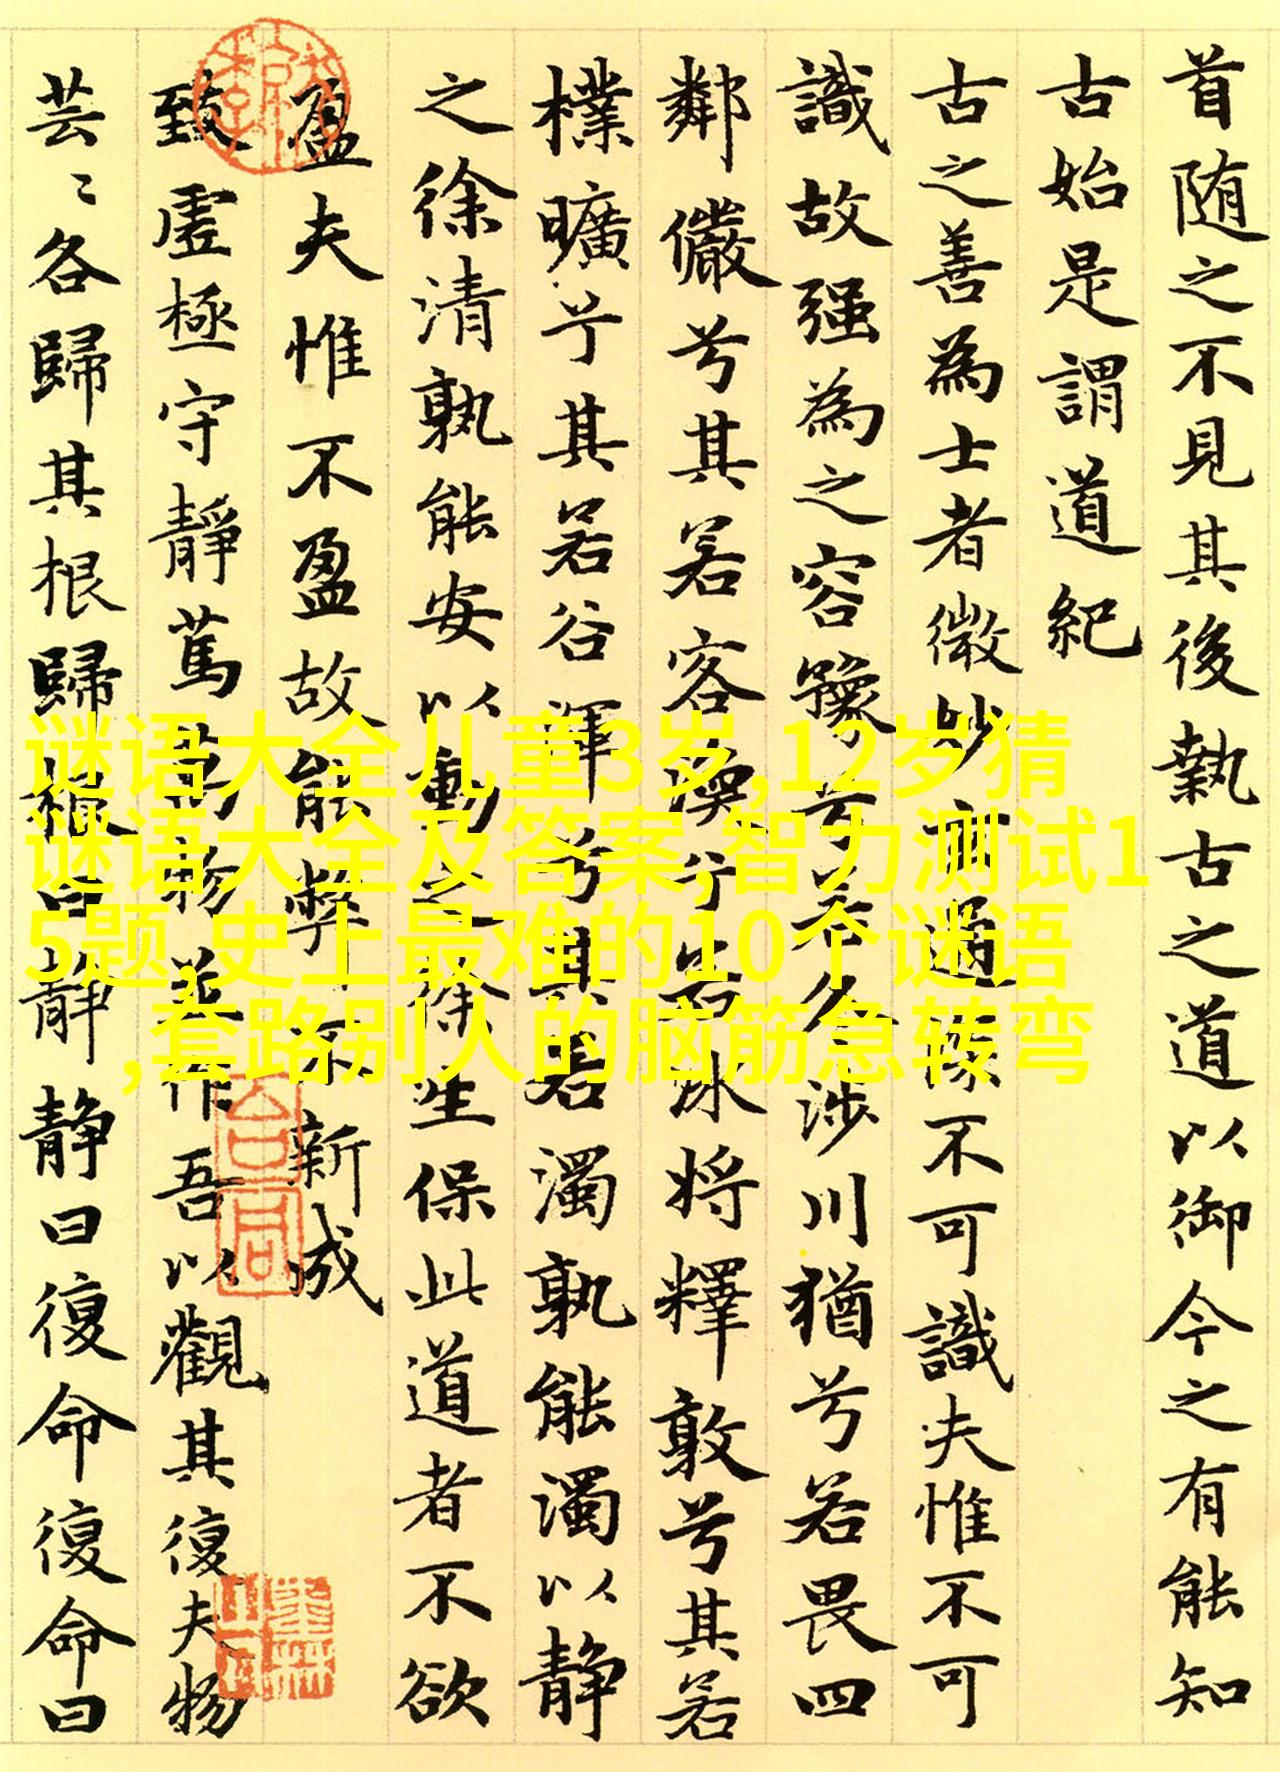 首随之不見其後執古之道以御今之有能知
古始是謂道紀
古之善為士者微妙玄通深不可識夫惟不可
識故强為之容豫兮若冬涉川猶兮若畏四
鄰儼兮其若客渙兮若冰將釋敦兮其若
樸曠兮其若谷渾兮其若濁孰能濁以静
之徐清孰能安以動之徐生保此道者不欲
盈夫惟不盈故能弊不新成
致虛極守靜篤萬物並作吾以觀其復夫物
芸〻各歸其根歸根曰静静曰復命復命曰
谜语大全儿童3岁,12岁猜
谜语大全及答案,智力测试1
5题,史上最难的10个谜语
,套路别人的脑筋急转弯